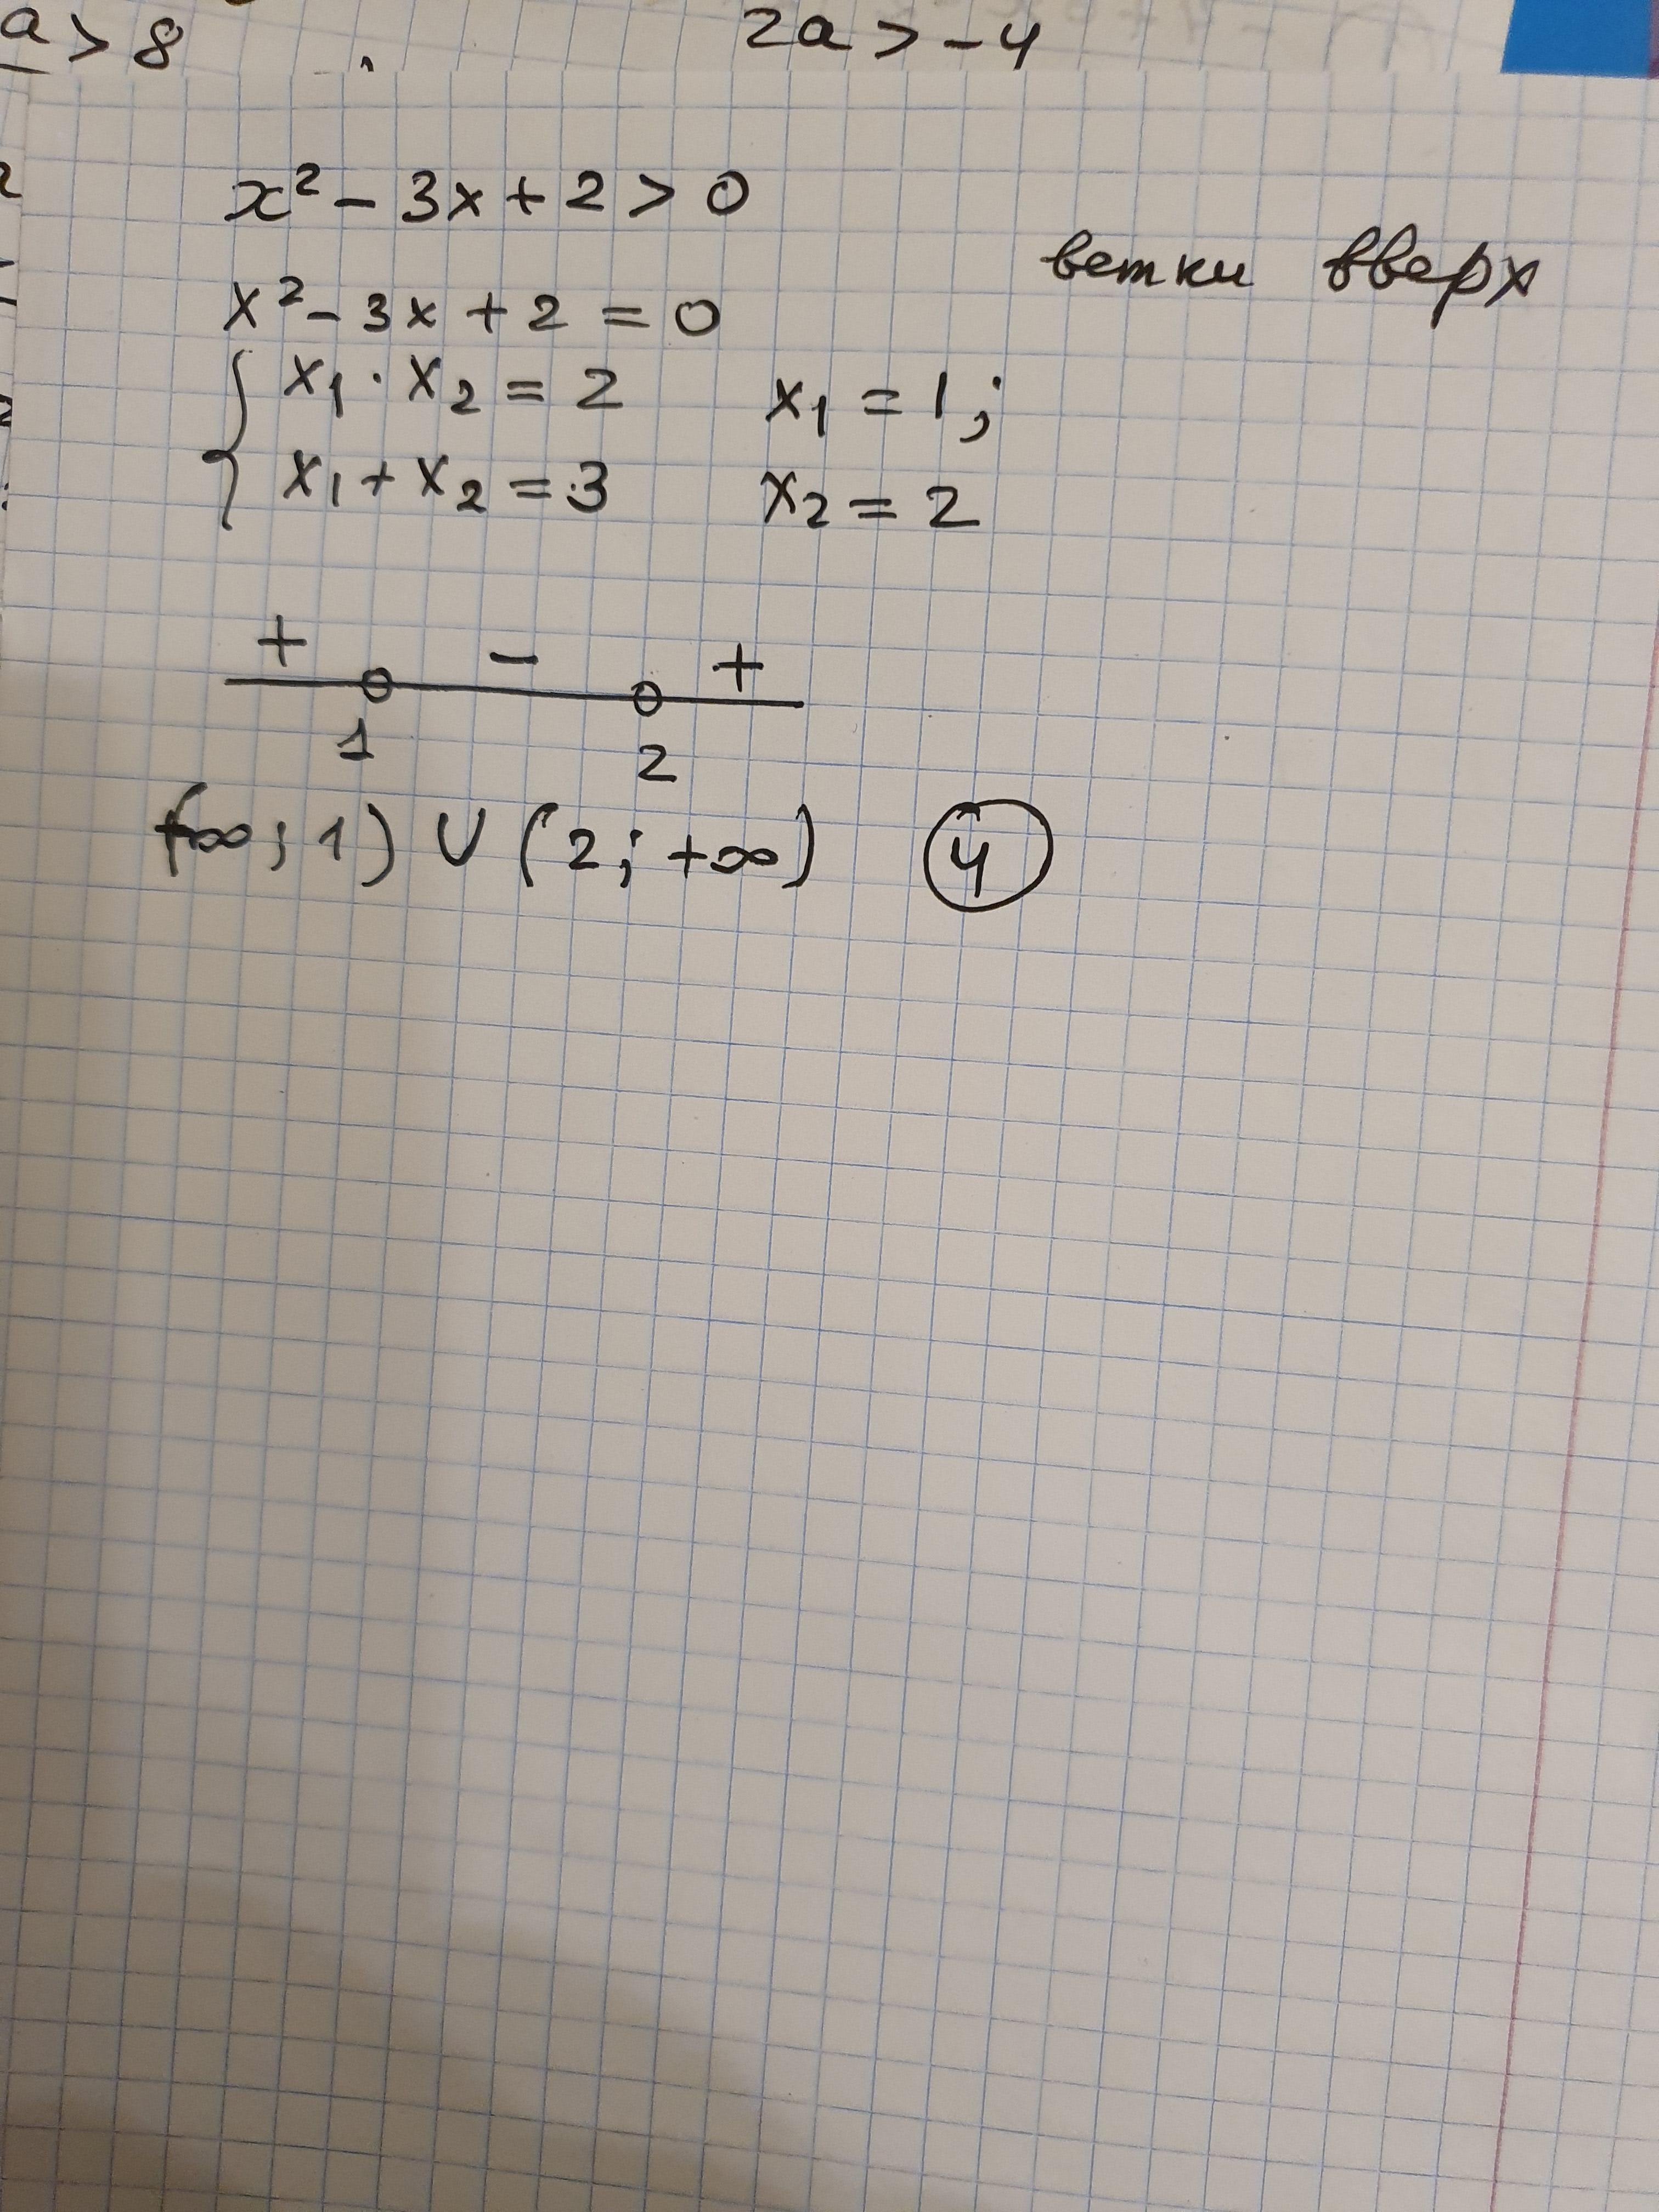 a > 8 2a > -4
x² - 3x + 2 > 0
ветки вверх
x² - 3x + 2 = 0
x₁ · x₂ = 2 x₁ = 1;
x₁ + x₂ = 3 x₂ = 2
+ - +
1 2
(-∞; 1) ∪ (2; +∞) 4